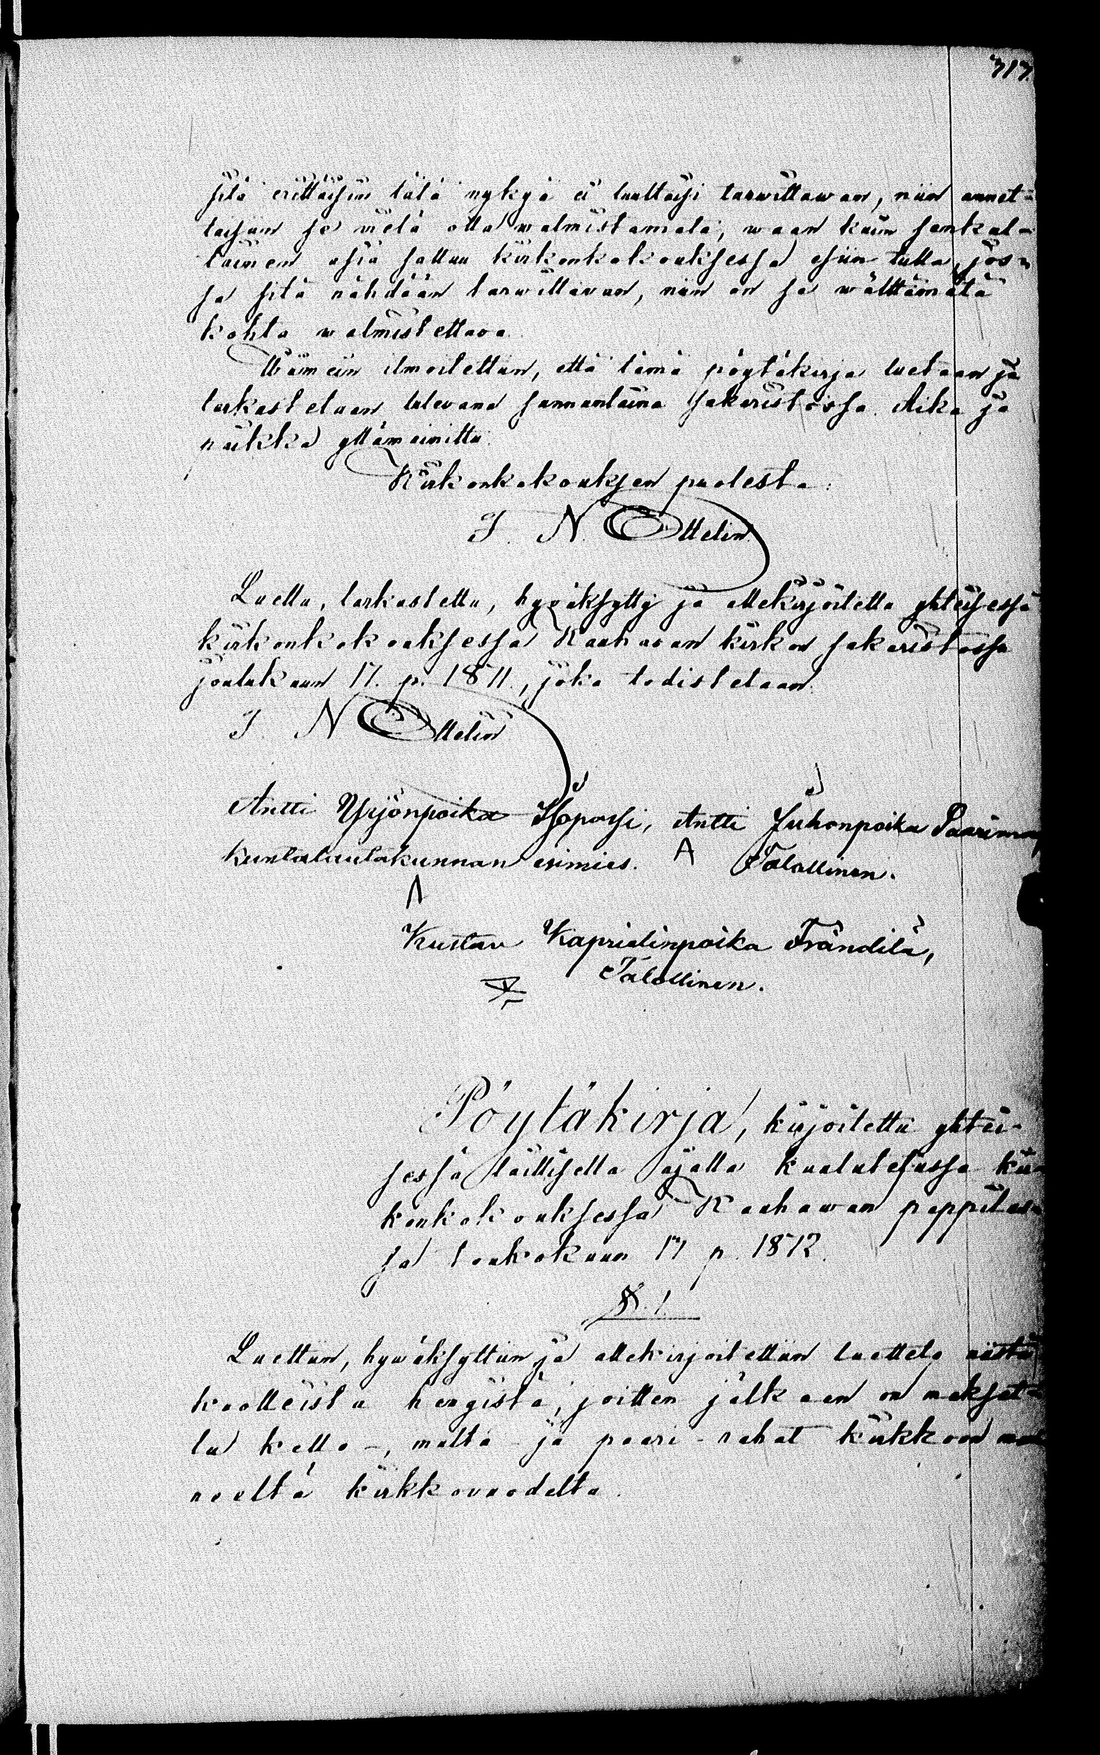 717.
sitä erittäisiin tätä nykyä ei luultaisi tarwittawan, niin annet-
taisiin se vielä olla walmistamata, waan kuin senkal-
tainen asia sattuu kirkonkokouksessa esiin tulla, jos-
sa sitä nähdään tarwittavan, niin on se wälttämätä
kohta walmistettava.
Wiimein ilmoitettiin, että tämä pöytäkirja luetaan ja
tarkastetaan tulevana sunnuntaina sakaristossa. Aika ja
paikka yllämainittu.
Kirkonkokouksen puolesta:
I. N. Ottelin
Luettu, tarkastettu, hyväksytty ja allekirjoitettu yhteisessä
kirkonkokouksessa Kauhavan kirkon sakaristossa
joulukuun 17. p. 1871, joka todistetaan.
I. N. Ottelin
Antti Yrjönpoika Isopassi, Antti Juhonpoika
kuntalautakunnan esimies. Talollinen.
Kustav Kaprielinpoika Frändilä,
Talollinen.
Pöytäkirja, kirjoitettu yhtei-
sessä laillisella ajalla kuulutetussa kir-
konkokouksessa Kauhawan pappilas-
sa toukokuun 17 p. 1872.
§. 1.
Luettiin, hywäksyttiin ja allekirjoitettiin luettelo niistä
kuolleista hengistä, joitten jälkeen on maksat-
tu kello-, multa- ja paari-rahat kirkkoon
neeltä kirkkovuodelta.